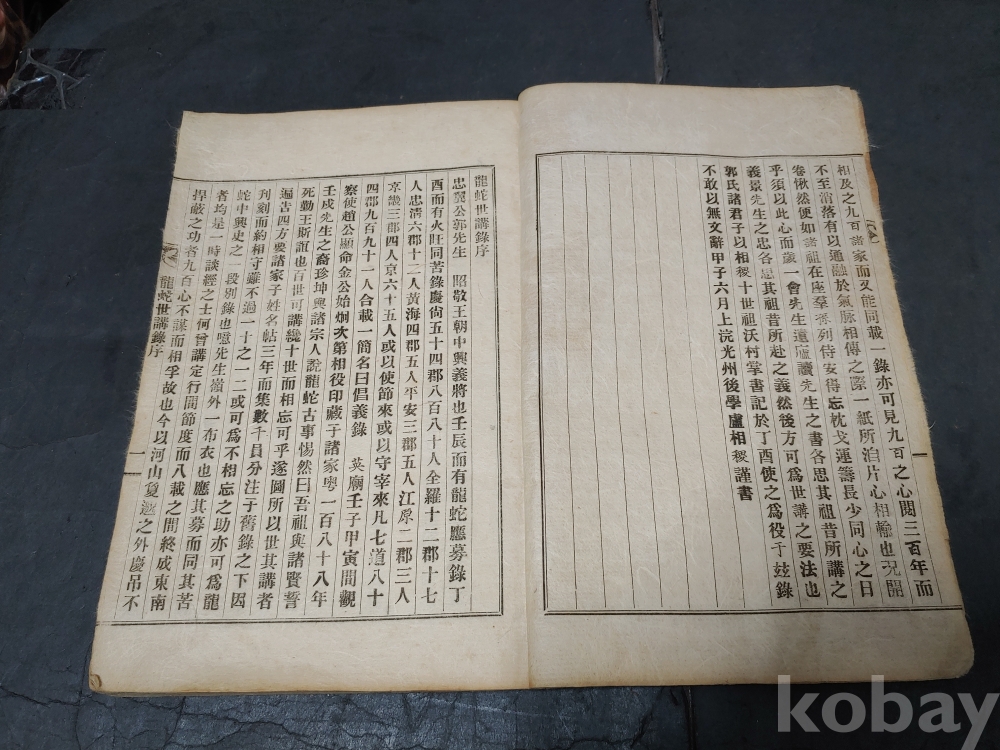 龍蛇世講錄序
忠翼公郭先生 昭敬王朝中興義將也壬辰而有龍蛇應募錄丁
酉而有火旺同苦錄慶尙五十四郡八百八十人全羅十二郡十七
人忠淸六郡十二人黃海四郡五人平安三郡五人江原二郡三人
京畿三郡四人京六十五人或以使節來或以守宰來凡七道八十
四郡九百九十一人合載一簡名曰倡義錄 英廟壬子甲寅間觀
察使趙公顯命金公始炯次第相役印藏于諸家粤一百八十八年
壬戌先生之裔珍坤興諸宗人說龍蛇古事惕然曰吾祖與諸賢誓
死勤王斯誼也百世可講纔十世而相忘可乎遂圖所以世其講者
遍告四方要諸家子姓名帖三年而集數千員分注于舊錄之下因
刋刻而約相守雖不過一十之一二或可爲不相忘之助亦可爲龍
蛇中興史之一段別錄也噫先生嶺外一布衣也應其募而同其苦
者均是一時談經之士何曾講定行間節度而八載之間終成東南
捍蔽之功者九百心不謀而相孚故也今以河山夐邈之外慶吊不
龍蛇世講錄序
一
相及之九百諸家而又能同載一錄亦可見九百之心閱三百年而
不至淆落有以通融於氣脉相傳之際一紙所泊片心相輸也况開
卷愀然便如諸祖在座羣孫列侍安得忘枕戈運籌長少同心之日
乎須以此心而歲一會先生遺廬讀先生之書各思其祖昔所講之
義景先生之忠各思其祖昔所赴之義然後方可爲世講之要法也
郭氏諸君子以相稷十世祖沃村掌書記於丁酉使之爲役于玆錄
不敢以無文辭甲子六月上浣光州後學盧相稷謹書
kobay